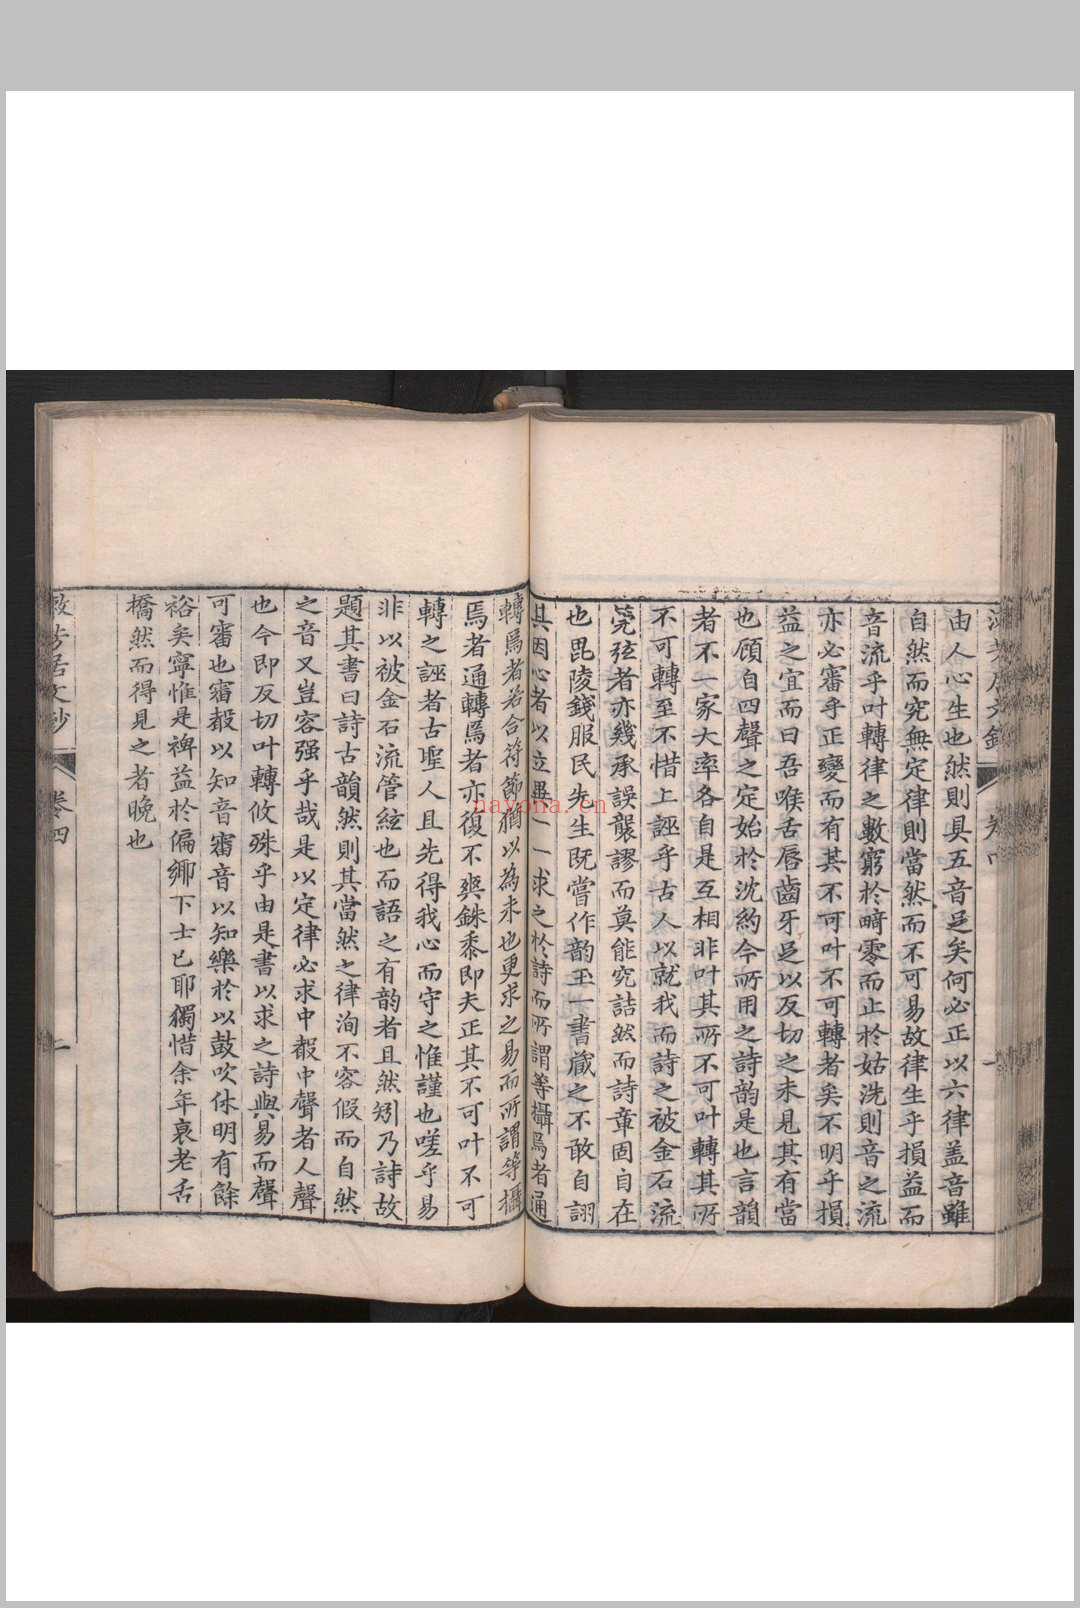 由人心生也然則具五音足矣何必正以六律蓋音雖
自然而究無定律則當然而不可易故律生乎損益而
音流乎叶轉律之數窮於畸零而止於姑洗則音之流
亦必審乎正變而有其不可叶不可轉者矣不明乎損
益之宜而曰吾喉舌唇齒牙足以反切之未見其有當
也顧自四聲之定始於沈約今所用之詩韵是也言韻
者不一家大率各自是互相非叶其所不可叶轉其所
不可轉至不惜上誣乎古人以就我而詩之被金石流
筦弦者亦幾承誤襲謬而莫能究詰然而詩章固自在
也毘陵錢服民先生既嘗作韵玉一書藏之不敢自詡
其因心者以立異一一求之於詩而所謂等攝焉者通
轉焉者若合符節猶以為未也更求之易而所謂等攝
焉者通轉焉者亦復不爽銖黍即夫正其不可叶不可
轉之誣者古聖人且先得我心而守之惟謹也嗟乎易
非以被金石流管絃也而語之有韵者且然矧乃詩故
題其書曰詩古韻然則其當然之律洵不容假而自然
之音又豈容强乎哉是以定律必求中聲中聲者人聲
也今即反切叶轉攸殊乎由是書以求之詩與易而聲
可審也審聲以知音審音以知樂於以鼓吹休明有餘
裕矣寧惟是裨益於偏鄉下士已耶獨惜余年衰老舌
撟然而得見之者晚也
居文鈔 卷四